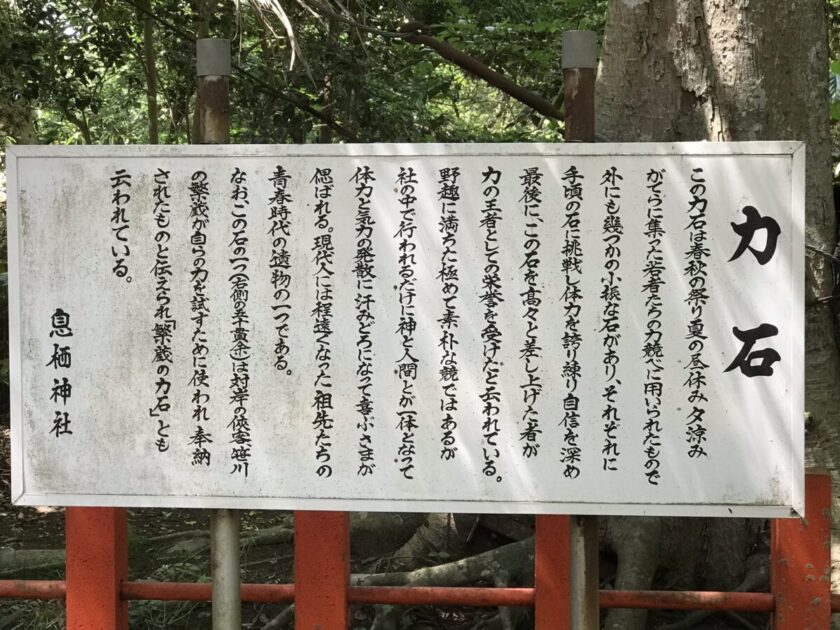 力石
この力石は春秋の祭り夏の昼休み夕涼み
がてらに集った若者たちの力競べに用いられたもので
外にも幾つかの小振な石があり、それぞれに
手頃の石に挑戦し体力を誇り練り自信を深め
最後に、この石を高々と差し上げた者が
力の王者としての栄誉を受けたと云われている。
野趣に満ちた極めて素朴な競ではあるが
社の中で行われるだけに神と人間とが一体となって
体力と気力の発散に汗みどろになって喜ぶさまが
偲ばれる。現代人には程遠くなった祖先たちの
青春時代の遺物の一つである。
なおこの石の一つ(右側の五十貫余)は対岸の侠客笹川
の繁蔵が自らの力を試すために使われ奉納
されたものと伝えられ「繁蔵の力石」とも
云われている。
息栖神社